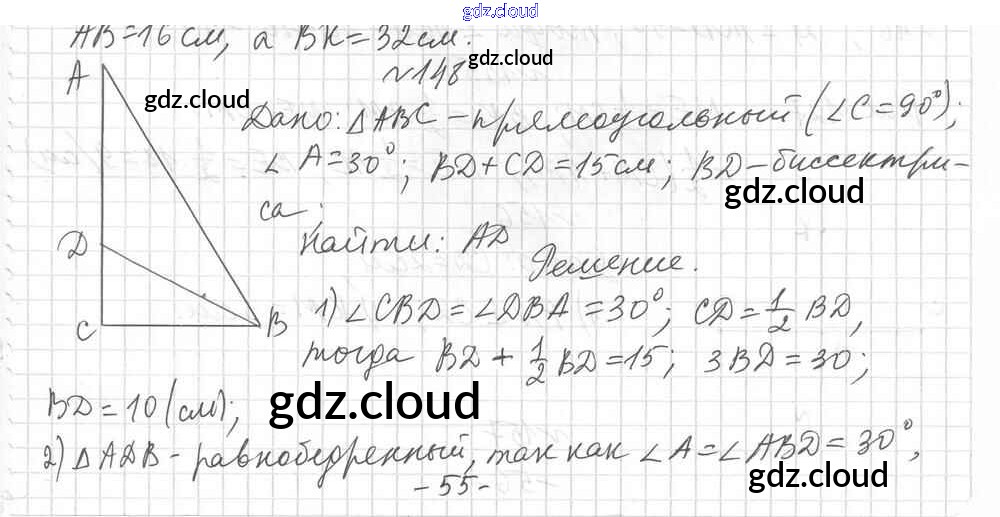 gdz.cloud
AB=16 см, а BK=32 см.
gdz.cloud
№148
gdz.cloud
A
Дано: △ABC - прямоугольный (∠C=90°);
∠A=30°; BD+CD=15 см; BD-биссектри-
gdz.cloud
са.
Найти: AD
D
Решение.
C
B
1) ∠CBD=∠DBA=30°; CD=1/2 BD,
тогда BD+1/2 BD=15; 3BD=30;
BD=10 (см);
gdz.cloud
2) △ADB - равнобедренный, так как ∠A=∠ABD=30°,
gdz.cloud
-55-